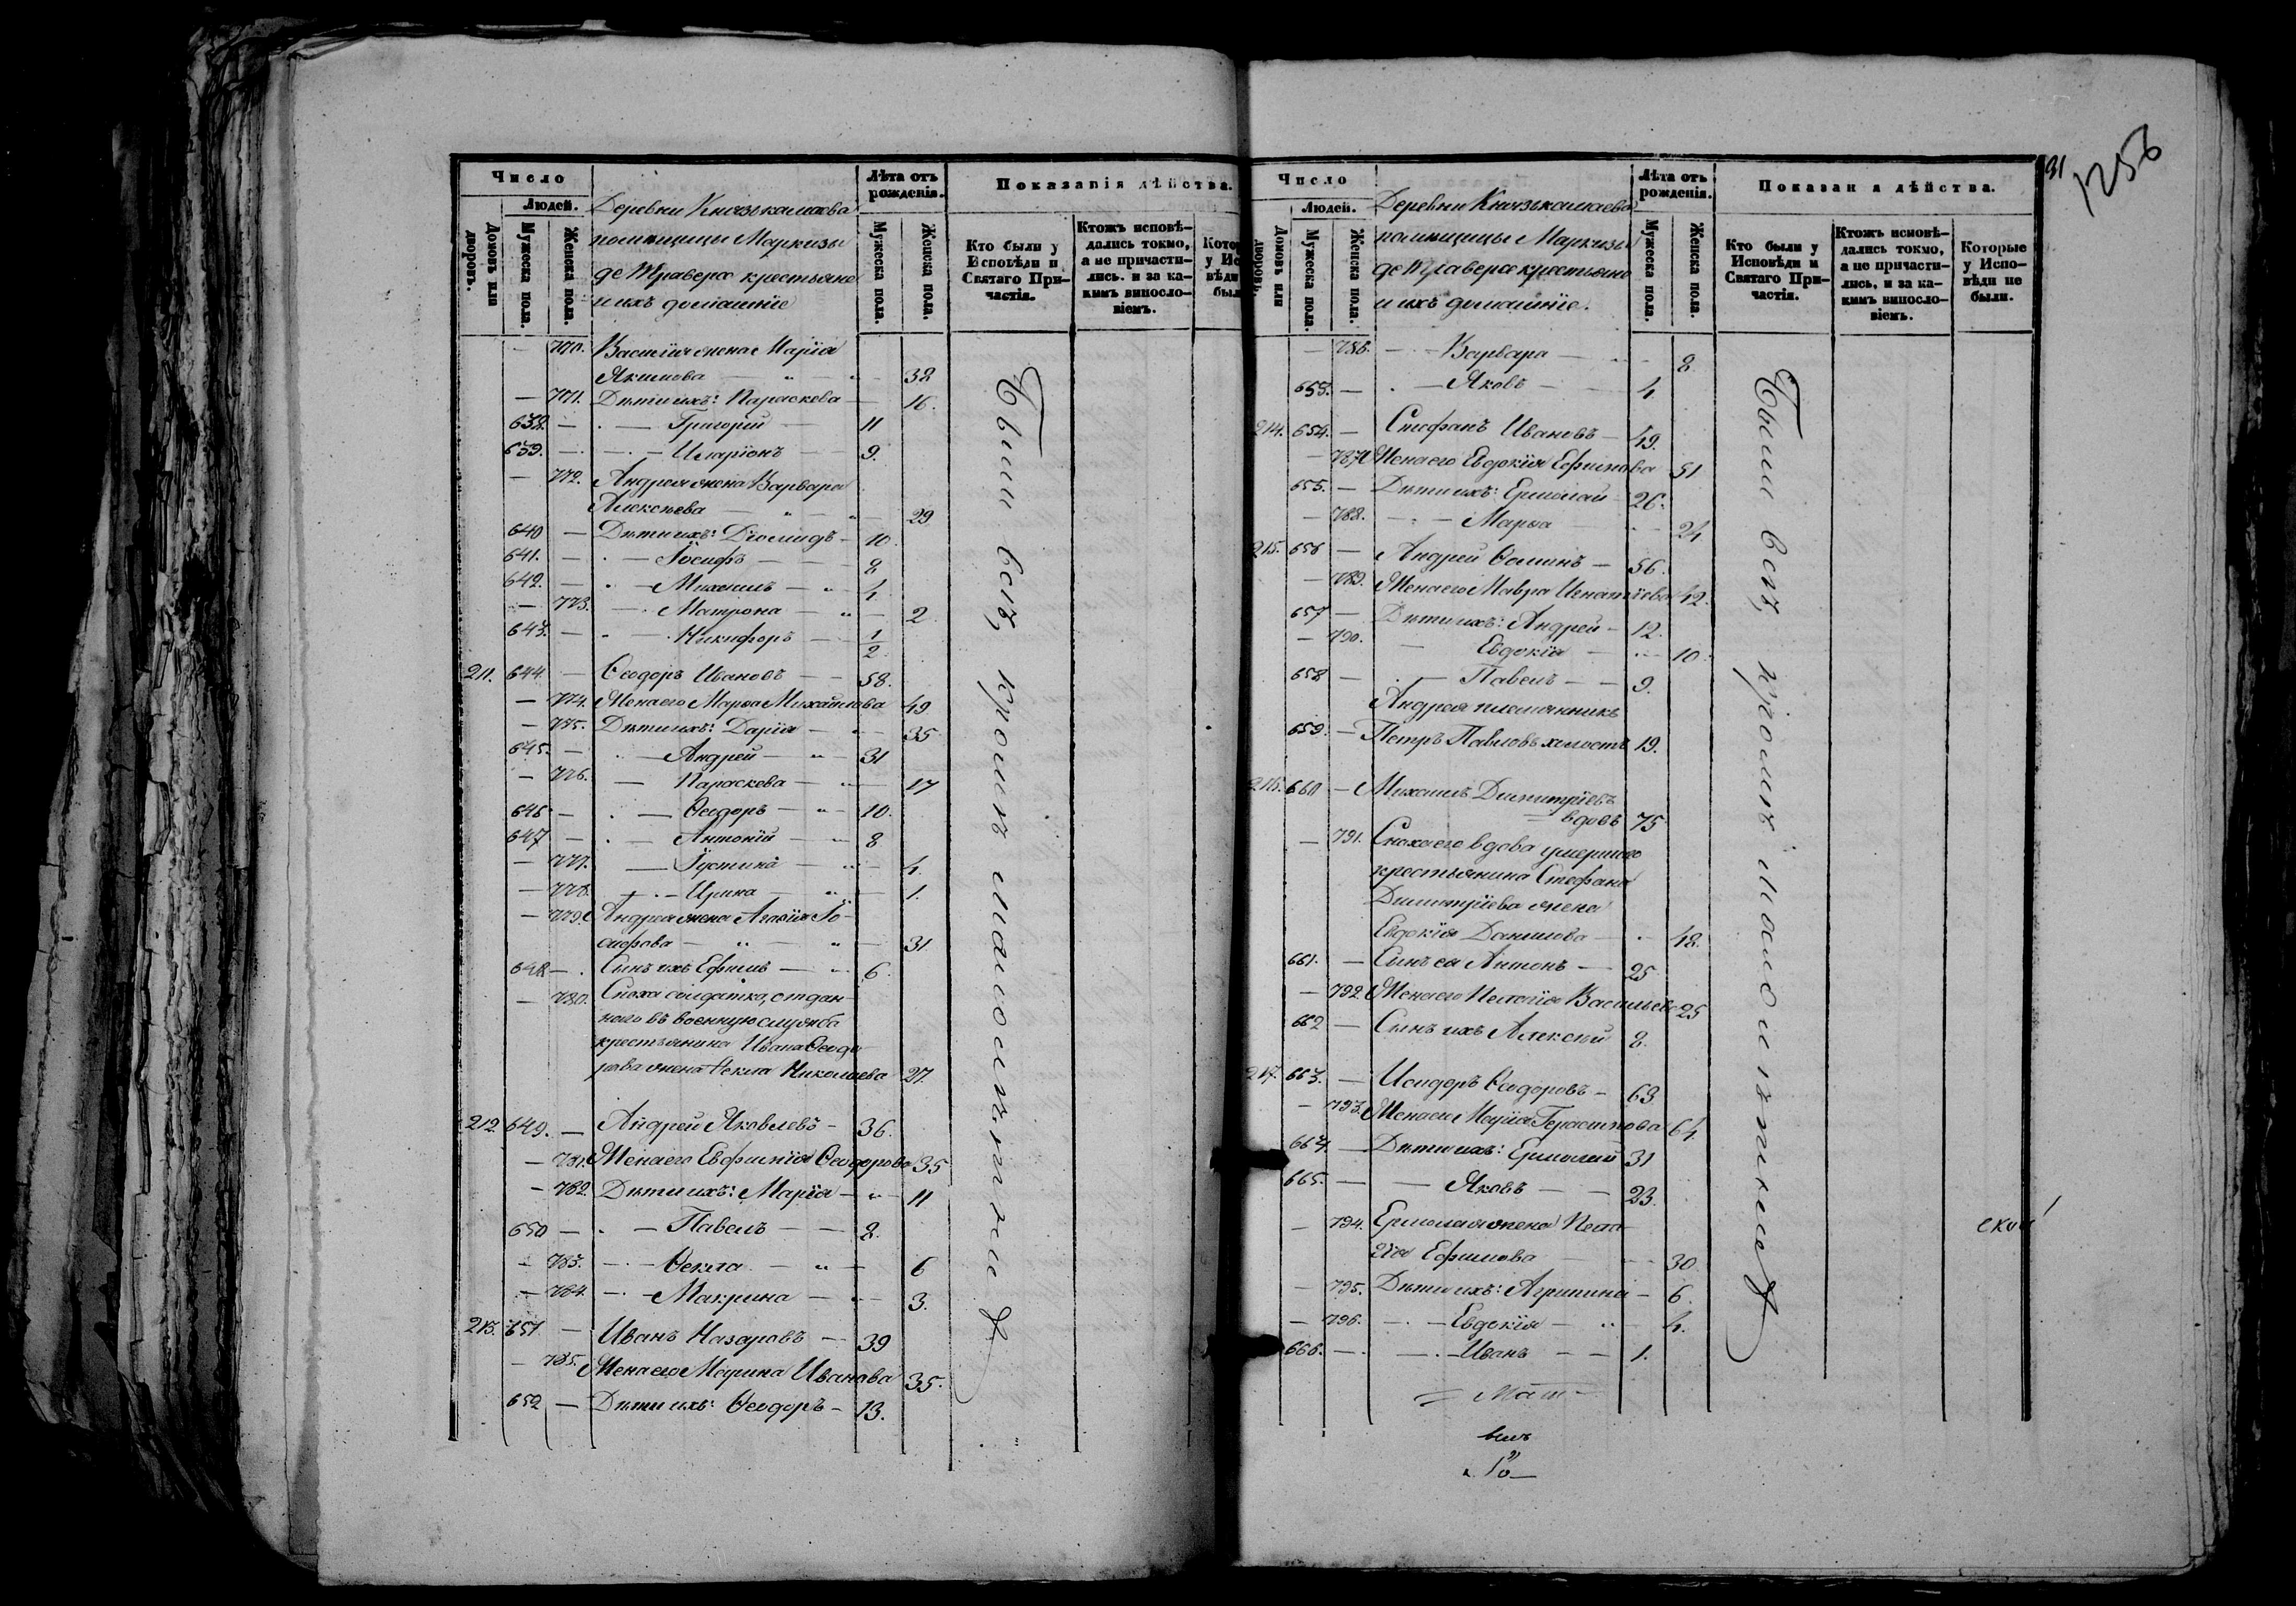 Число
Людей.
Домовъ или дворовъ.
Мужеска пола.
Женска пола.
Деревни Князькамаева
помѣщицы Маркизы
де Траверсе крестьяне
и ихъ домашніе
Лѣта отъ рожденія.
Мужеска пола.
Женска пола.
Показанія дѣйства.
Кто были у Исповѣди и Святаго Причастія.
Ктожъ исповѣдались токмо, а не причастились. и за какимъ винословіемъ.
— 770. Василія жена Марія
Якимова — 38
— 771. Дѣти ихъ: Параскева — 16.
638. — Григорій — 11
639. — Иларіонъ — 9.
— 772. Андрея жена Варвара
Алексѣева — 29
640 — Дѣти ихъ: Діомидъ — 10.
641. — Іосифъ — 8
642. — Михаилъ — 4
— 773. — Матрона — 2
643. — Никифоръ — 1/2
211. 644 — Ѳеодоръ Ивановъ — 58.
— 774. Жена его Марѳа Михайлова 49
— 775. Дѣти ихъ: Дарія — 35
645. — Андрей — 31
— 776. — Параскева — 17
646. — Ѳеодоръ — 10.
647 — Антоній — 8
— 777. — Іустина — 4.
— 778. — Ирина — 1.
— 779. Андрея жена Агаѳія Іо-
сифова — 31
648 — Сынъ ихъ Ефимъ — 6.
— 780. Сноха солдатка, отдан-
наго въ военную службу
крестьянина Ивана Ѳеодо-
рова жена Ѳекла Николаева 27.
212. 649. — Андрей Яковлевъ — 36.
— 781. Жена его Евфимія Ѳеодорова 35
— 782. Дѣти ихъ: Марія — 11
650 — Павелъ — 8.
— 783. — Ѳекла — 6
— 784. — Макрина — 3.
213. 651 — Иванъ Назаровъ — 39
— 785. Жена его Марина Иванова 35.
652 — Дѣти ихъ: Ѳеодоръ — 13.
Были всѣ, кромѣ малолѣтнихъ
31
1256
Число
Людей.
Домовъ или дворовъ.
Мужеска пола.
Женска пола.
Деревни Князькамаева
помѣщицы Маркизы
де Траверсе крестьяне
и ихъ домашніе.
Лѣта отъ рожденія.
Мужеска пола.
Женска пола.
Показан я дѣйства.
Кто были у Исповѣди и Святаго Причастія.
Ктожъ исповѣдались токмо, а не причастились, и за какимъ винословіемъ.
Которые у Исповѣди не были.
— 786. — Варвара — 8.
653. — Яковъ — 4
214. 654. — Стефанъ Ивановъ — 49.
— 787. Жена его Евдокія Ефимова 51
655. — Дѣти ихъ: Ермолай 26.
— 788. — Марѳа — 24
215. 656 — Андрей Ѳоминъ — 56.
— 789. Жена его Мавра Игнатіева 42.
657 — Дѣти ихъ: Андрей — 12.
— 790. — Евдокія — 10.
658 — Павелъ — 9.
Андрея племянникъ
659. — Петръ Павловъ холостъ 19.
216. 660 — Михаилъ Димитріевъ
вдовъ 75
— 791. Сноха его вдова умершаго
крестьянина Стефана
Димитріева жена
Евдокія Данилова — 48.
661. — Сынъ ея Антонъ — 25
— 792. Жена его Пелагія Васильева 25
662 — Сынъ ихъ Алексѣй 8.
217. 663. — Исидоръ Ѳеодоровъ — 63
— 793. Жена его Марія Герасимова 64
664. — Дѣти ихъ: Ермолай 31
665. — Яковъ — 23.
— 794. Ермолая жена Пела-
гія Ефимова — 30.
— 795. Дѣти ихъ: Агрипина — 6.
— 796. — Евдокія — 4.
666. — Иванъ — 1.
Были всѣ, кромѣ малолѣтнихъ
ской